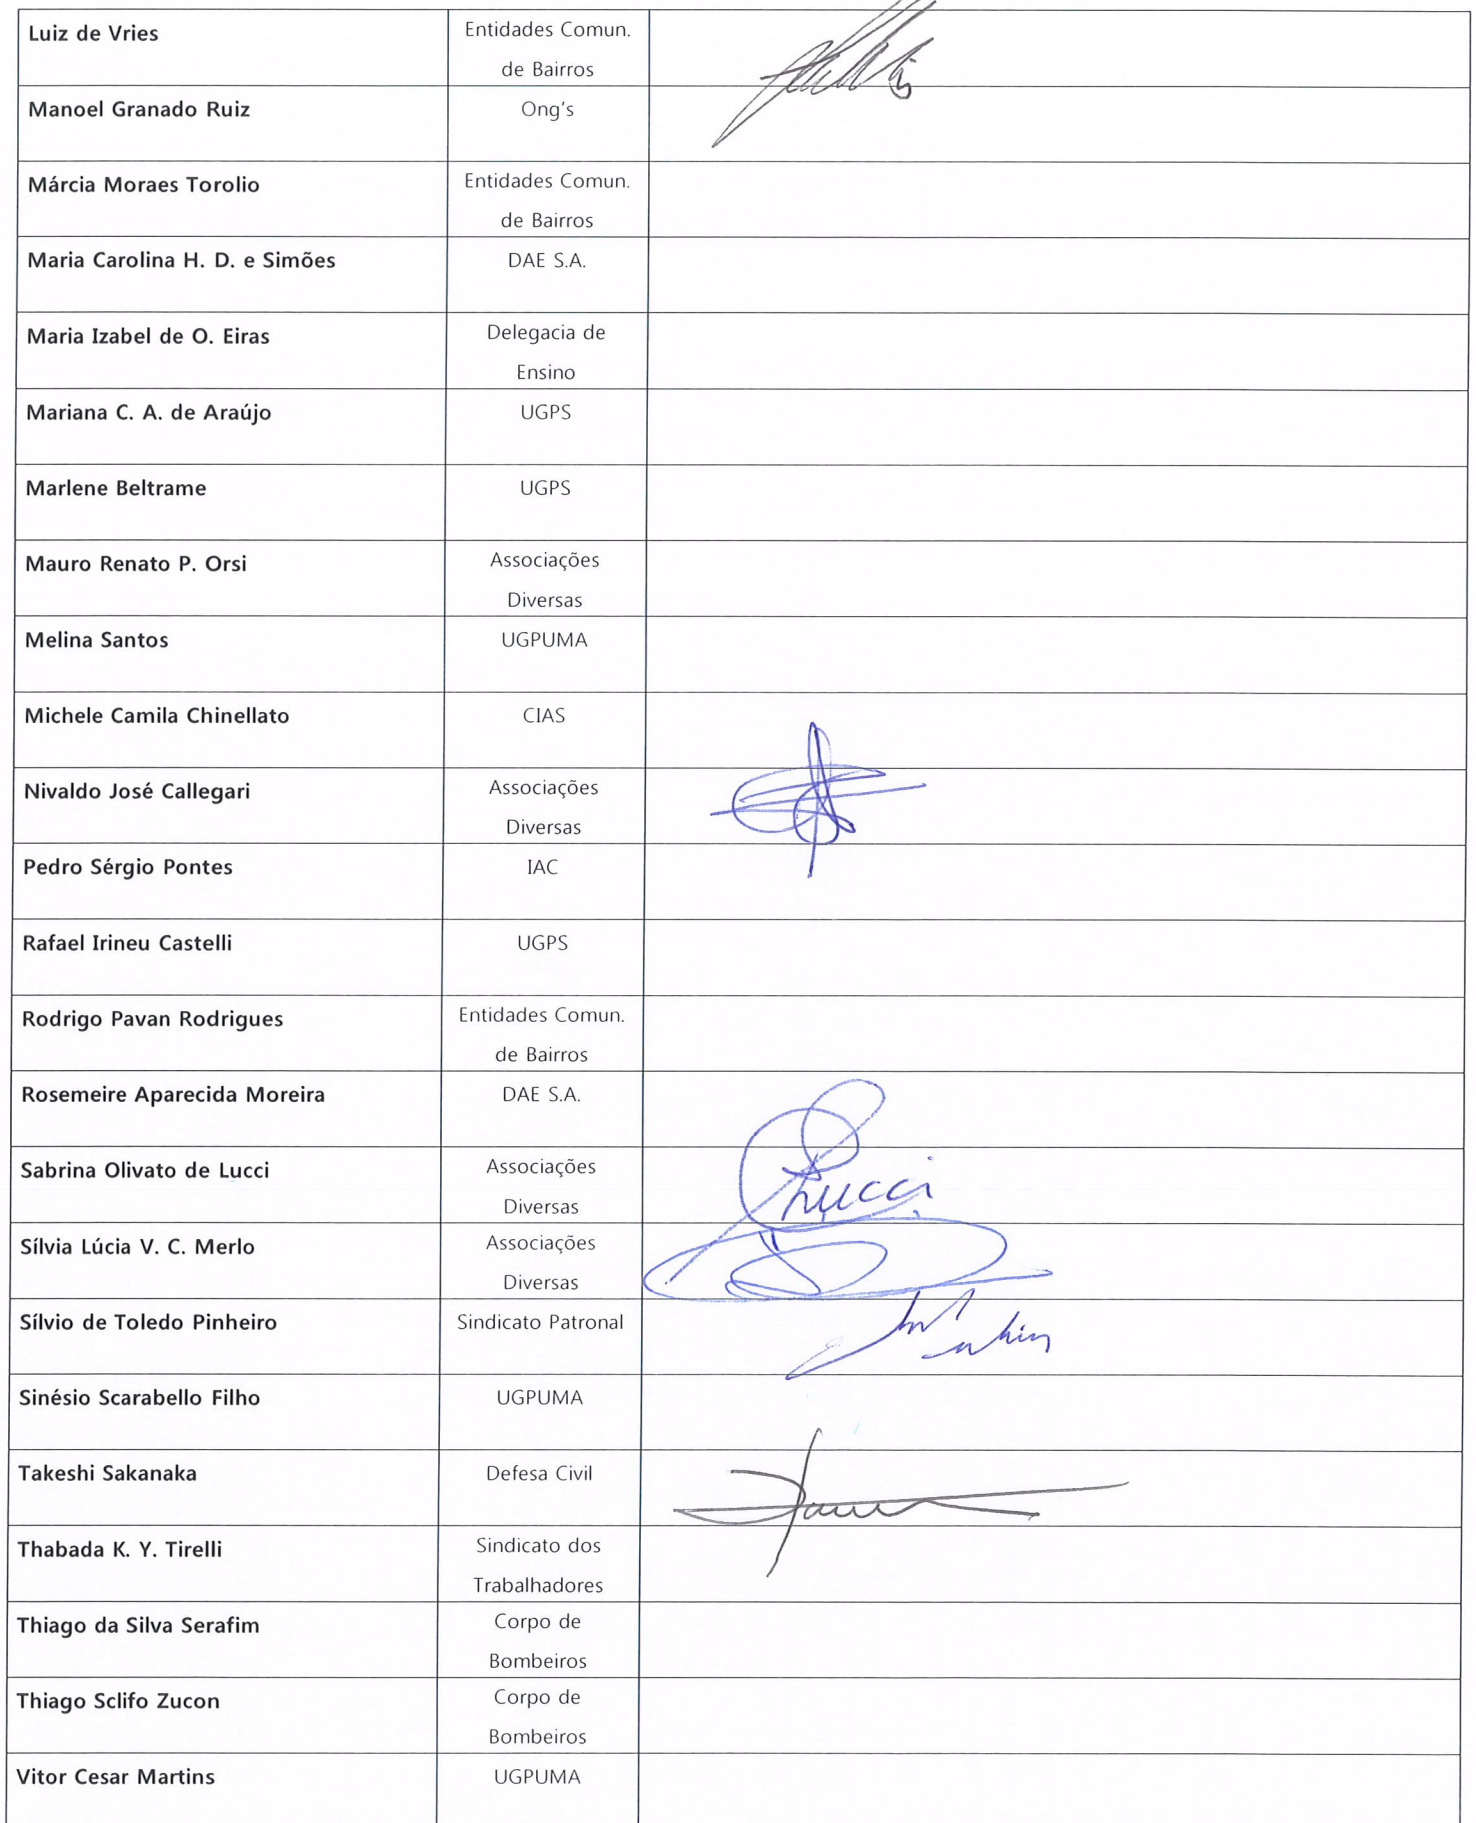 Luiz de Vries Entidades Comun.
de Bairros
Manoel Granado Ruiz Ong's
Márcia Moraes Torolio Entidades Comun.
de Bairros
Maria Carolina H. D. e Simões DAE S.A.
Maria Izabel de O. Eiras Delegacia de
Ensino
Mariana C. A. de Araújo UGPS
Marlene Beltrame UGPS
Mauro Renato P. Orsi Associações
Diversas
Melina Santos UGPUMA
Michele Camila Chinellato CIAS
Nivaldo José Callegari Associações
Diversas
Pedro Sérgio Pontes IAC
Rafael Irineu Castelli UGPS
Rodrigo Pavan Rodrigues Entidades Comun.
de Bairros
Rosemeire Aparecida Moreira DAE S.A.
Sabrina Olivato de Lucci Associações Lucci
Diversas
Sílvia Lúcia V. C. Merlo Associações
Diversas
Sílvio de Toledo Pinheiro Sindicato Patronal
Sinésio Scarabello Filho UGPUMA
Takeshi Sakanaka Defesa Civil
Thabada K. Y. Tirelli Sindicato dos
Trabalhadores
Thiago da Silva Serafim Corpo de
Bombeiros
Thiago Sclifo Zucon Corpo de
Bombeiros
Vitor Cesar Martins UGPUMA